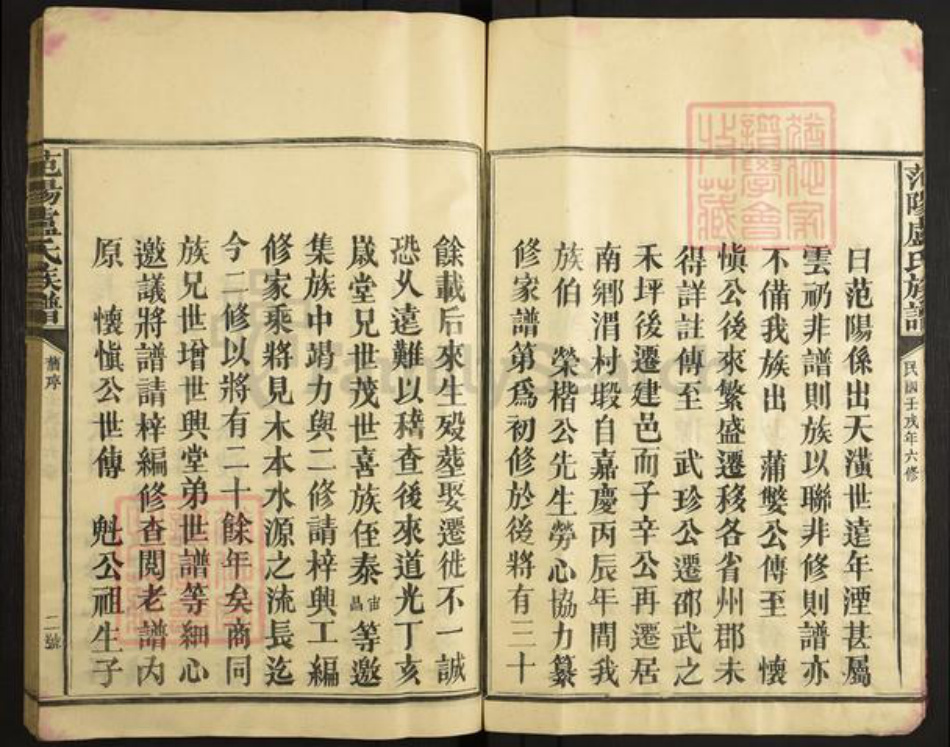 范陽盧氏族譜
民國壬戌年六修
曰范陽係出天潢世遠年湮甚屬
雲礽非譜則族以聯非修則譜亦
不備我族出 蒲嫳公傳至 懷
慎公後來繁盛遷移各省州郡未
得詳註傳至 武珍公遷邵武之
禾坪後遷建邑而子辛公再遷居
南鄉渭村塅自嘉慶丙辰年間我
族伯 榮楷公先生勞心協力纂
修家譜第爲初修於後將有三十
餘載后來生歿塟娶遷徙不一誠
恐乆遠難以稽查後來道光丁亥
歲堂兄世茂世喜族侄泰宙昌等邀
集族中竭力與二修請梓興工編
修家乘將見木本水源之流長迄
今二修以將有二十餘年矣商同
族兄世增世興堂弟世譜等細心
邀議將譜請梓編修查閱老譜內
原 懷慎公世傳 魁公祖生子
范陽盧氏族譜
舊序
二號
道學會
收藏
FamilySearch